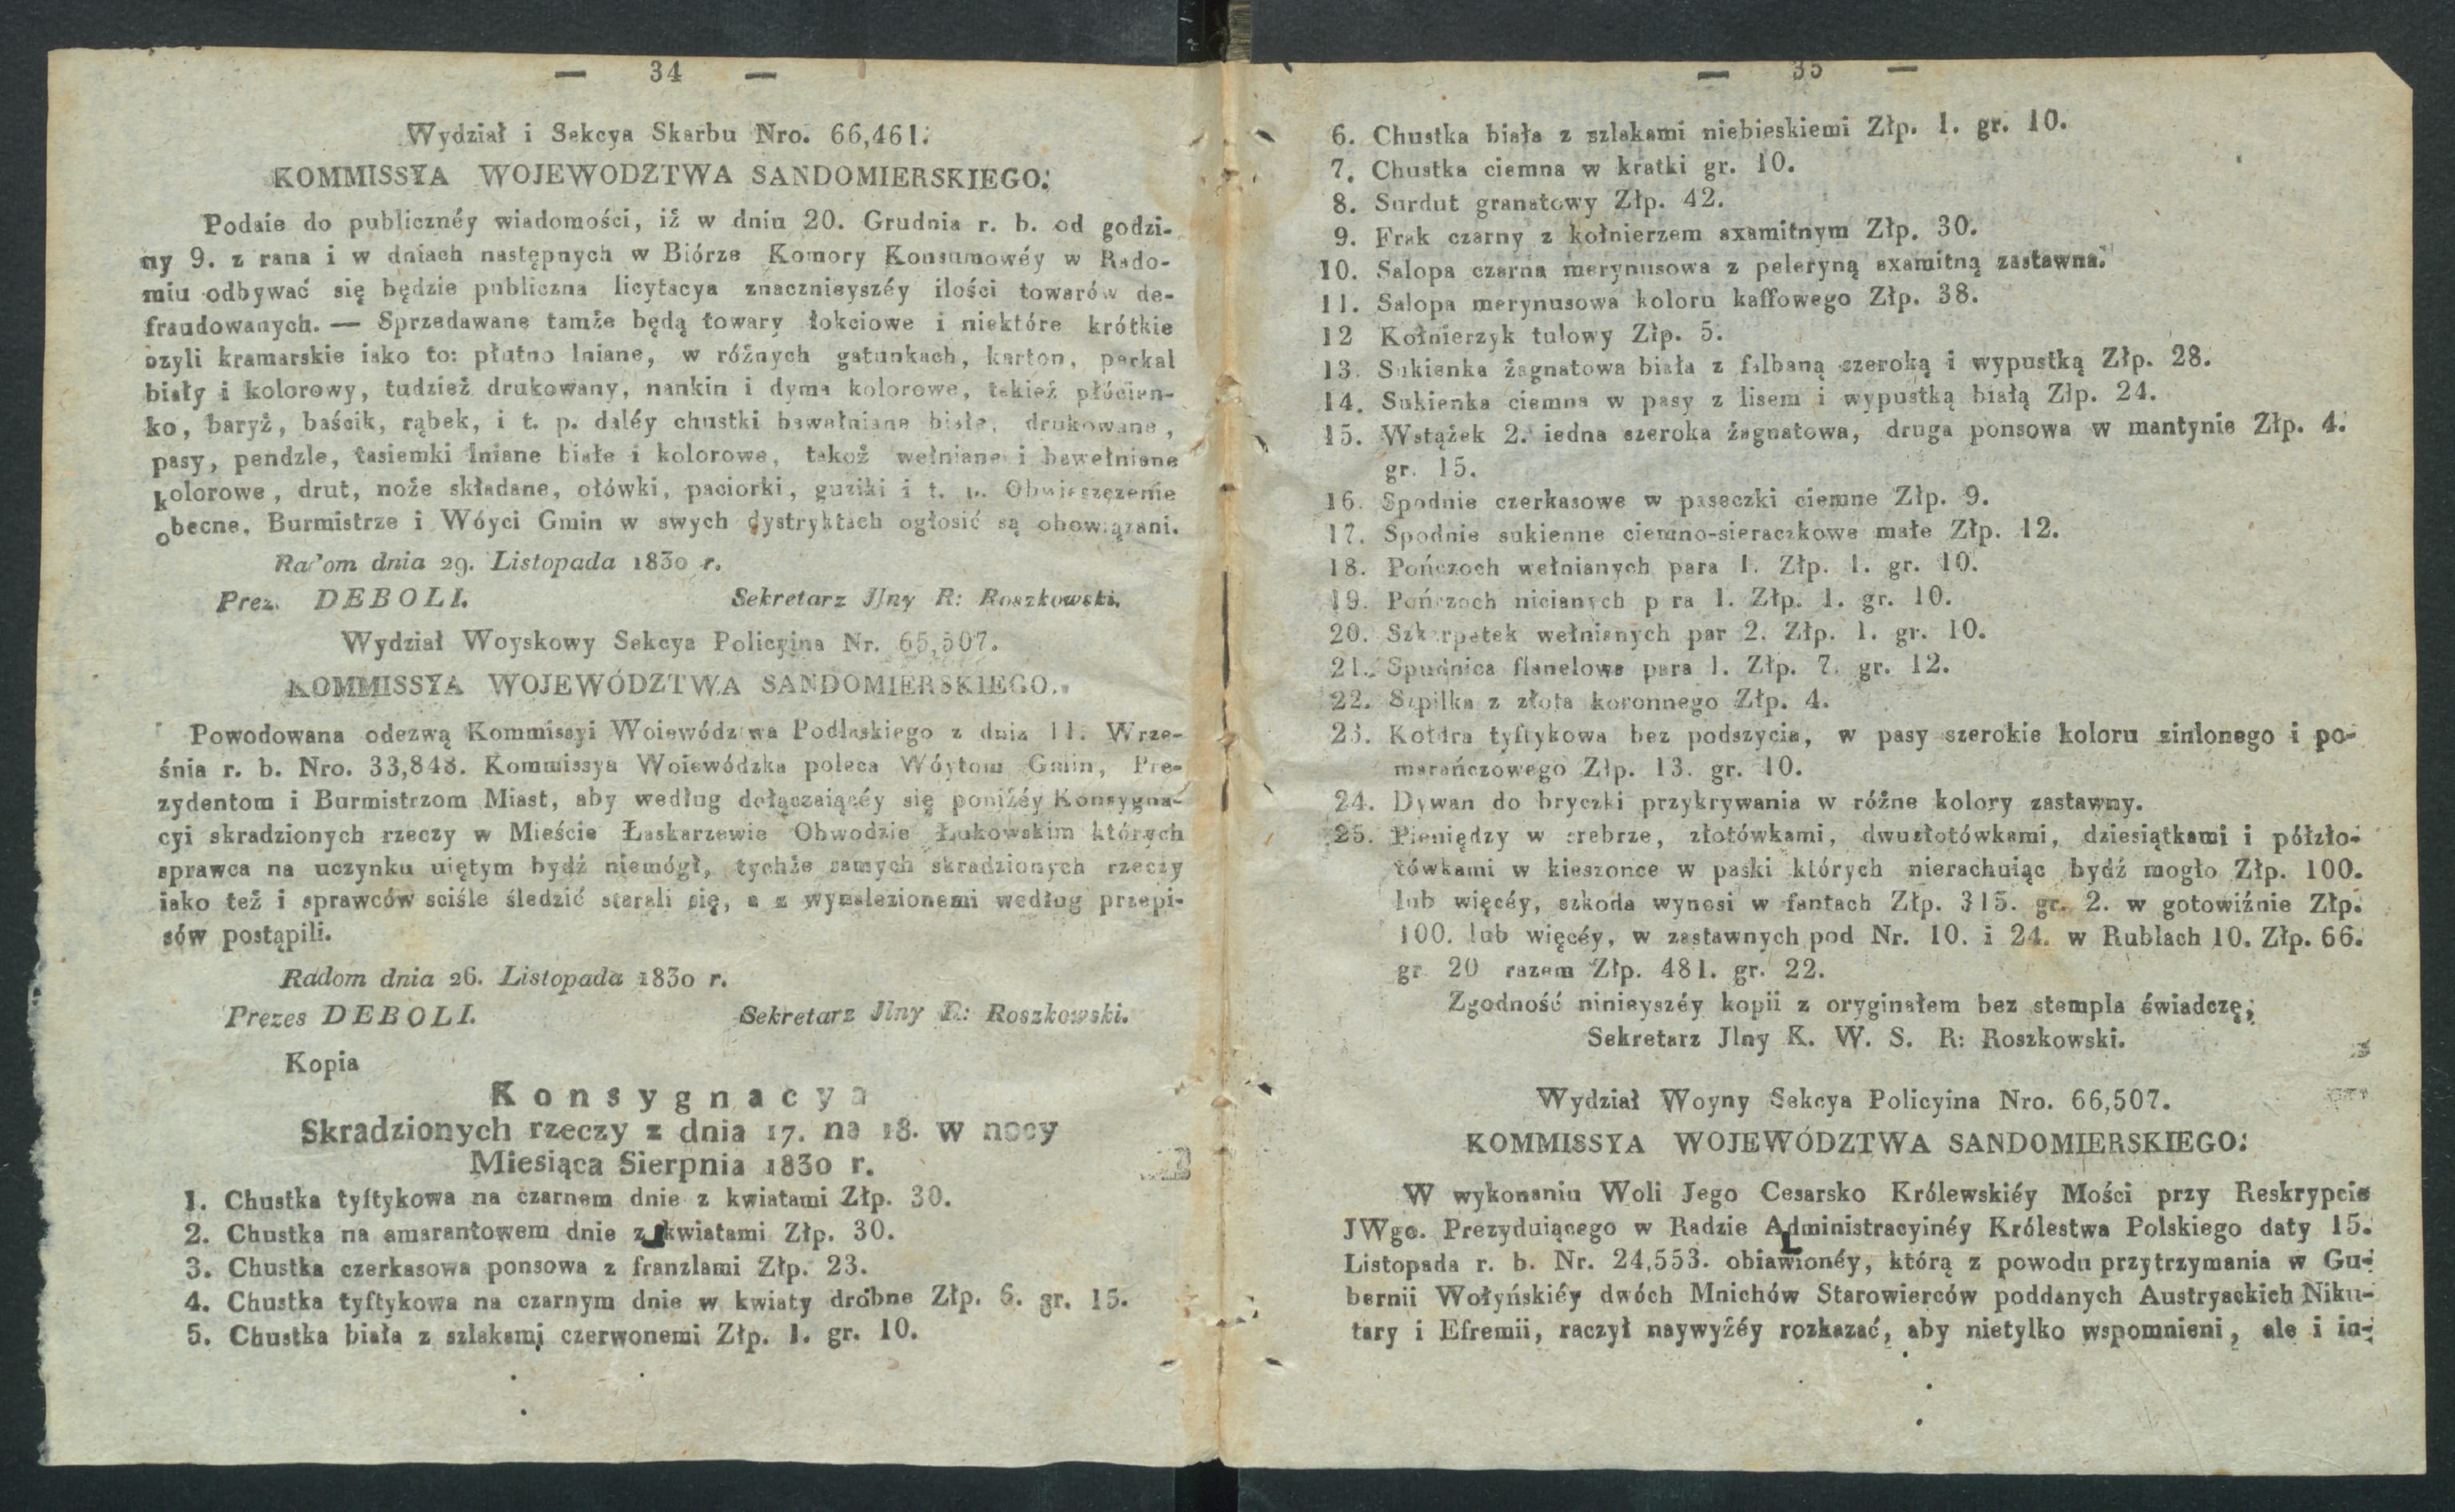 — 34 —
Wydział i Sekcya Skarbu Nro. 66,461.
KOMMISSYA WOJEWODZTWA SANDOMIERSKIEGO.
Podaie do publicznéy wiadomości, iż w dniu 20. Grudnia r. b. od godzi-
ny 9. z rana i w dniach następnych w Biórze Komory Konsumowéy w Rado-
miu odbywać się będzie publiczna licytacya znacznieyszéy ilości towarów de-
fraudowanych. — Sprzedawane tamże będą towary łokciowe i niektóre krótkie
czyli kramarskie iako to: płutno lniane, w różnych gatunkach, karton, perkal
biały i kolorowy, tudzież drukowany, nankin i dyma kolorowe, takież płócien-
ko, baryż, baścik, rąbek, i t. p. daléy chustki bawełniane białe, drukowane,
pasy, pendzle, tasiemki lniane białe i kolorowe, takoż wełniane i bawełniane
kolorowe, drut, noże składane, ołówki, paciorki, guziki i t. p. Obwieszczenie
obecne, Burmistrze i Wóyci Gmin w swych dystryktach ogłosić są obowiązani.
Radom dnia 29. Listopada 1830 r.
Prez. DEBOLI. Sekretarz Jlny R: Roszkowski.
Wydział Woyskowy Sekcya Policyina Nr. 65,507.
KOMMISSYA WOJEWÓDZTWA SANDOMIERSKIEGO.
Powodowana odezwą Kommissyi Woiewództwa Podlaskiego z dnia 11. Wrze-
śnia r. b. Nro. 33,848. Kommissya Woiewódzka poleca Wóytom Gmin, Pre-
zydentom i Burmistrzom Miast, aby według dołączaiącéy się poniżéy Konsygna-
cyi skradzionych rzeczy w Mieście Łaskarzewie Obwodzie Łukowskim których
sprawca na uczynku uiętym bydź niemógł, tychże samych skradzionych rzeczy
iako też i sprawców sciśle śledzić starali się, a z wynalezionemi według przepi-
sów postąpili.
Radom dnia 26. Listopada 1830 r.
Prezes DEBOLI. Sekretarz Jlny R: Roszkowski.
Kopia
Konsygnacya
Skradzionych rzeczy z dnia 17. na 18. w nocy
Miesiąca Sierpnia 1830 r.
1. Chustka tyftykowa na czarnem dnie z kwiatami Złp. 30.
2. Chustka na amarantowem dnie z kwiatami Złp. 30.
3. Chustka czerkasowa ponsowa z franzlami Złp. 23.
4. Chustka tyftykowa na czarnym dnie w kwiaty drobne Złp. 6. gr. 15.
5. Chustka biała z szlakami czerwonemi Złp. 1. gr. 10.
— 35 —
6. Chustka biała z szlakami niebieskiemi Złp. 1. gr. 10.
7. Chustka ciemna w kratki gr. 10.
8. Surdut granatowy Złp. 42.
9. Frak czarny z kołnierzem axamitnym Złp. 30.
10. Salopa czarna merynusowa z peleryną axamitną zastawna.
11. Salopa merynusowa koloru kaffowego Złp. 38.
12 Kołnierzyk tulowy Złp. 5.
13. Sukienka żagnatowa biała z falbaną szeroką i wypustką Złp. 28.
14. Sukienka ciemna w pasy z lisem i wypustką białą Złp. 24.
15. Wstążek 2. iedna szeroka żagnatowa, druga ponsowa w mantynie Złp. 4.
gr. 15.
16. Spodnie czerkasowe w paseczki ciemne Złp. 9.
17. Spodnie sukienne ciemno-sieraczkowe małe Złp. 12.
18. Pończoch wełnianych para 1. Złp. 1. gr. 10.
19. Pończoch nicianych p ra 1. Złp. 1. gr. 10.
20. Szkarpetek wełnianych par 2. Złp. 1. gr. 10.
21. Spudnica flanelowa para 1. Złp. 7. gr. 12.
22. Szpilka z złota koronnego Złp. 4.
23. Kołdra tyftykowa bez podszycia, w pasy szerokie koloru zinlonego i po-
marańczowego Złp. 13. gr. 10.
24. Dywan do bryczki przykrywania w różne kolory zastawny.
25. Pieniędzy w srebrze, złotówkami, dwuzłotówkami, dziesiątkami i półzło-
tówkami w kieszonce w paski których nierachuiąc bydź mogło Złp. 100.
lub więcéy, szkoda wynosi w fantach Złp. 315. gr. 2. w gotowiźnie Złp.
100. lub więcéy, w zastawnych pod Nr. 10. i 24. w Rublach 10. Złp. 66.
gr 20 razem Złp. 481. gr. 22.
Zgodność ninieyszéy kopii z oryginałem bez stempla świadczę,
Sekretarz Jlny K. W. S. R: Roszkowski.
Wydział Woyny Sekcya Policyina Nro. 66,507.
KOMMISSYA WOJEWÓDZTWA SANDOMIERSKIEGO.
W wykonaniu Woli Jego Cesarsko Królewskiéy Mości przy Reskrypcie
JWgo. Prezyduiącego w Radzie Administracyinéy Królestwa Polskiego daty 15.
Listopada r. b. Nr. 24,553. obiawionéy, którą z powodu przytrzymania w Gu-
bernii Wołyńskiéy dwóch Mnichów Starowierców poddanych Austryackich Niku-
tary i Efremii, raczył naywyżéy rozkazać, aby nietylko wspomnieni, ale i in-